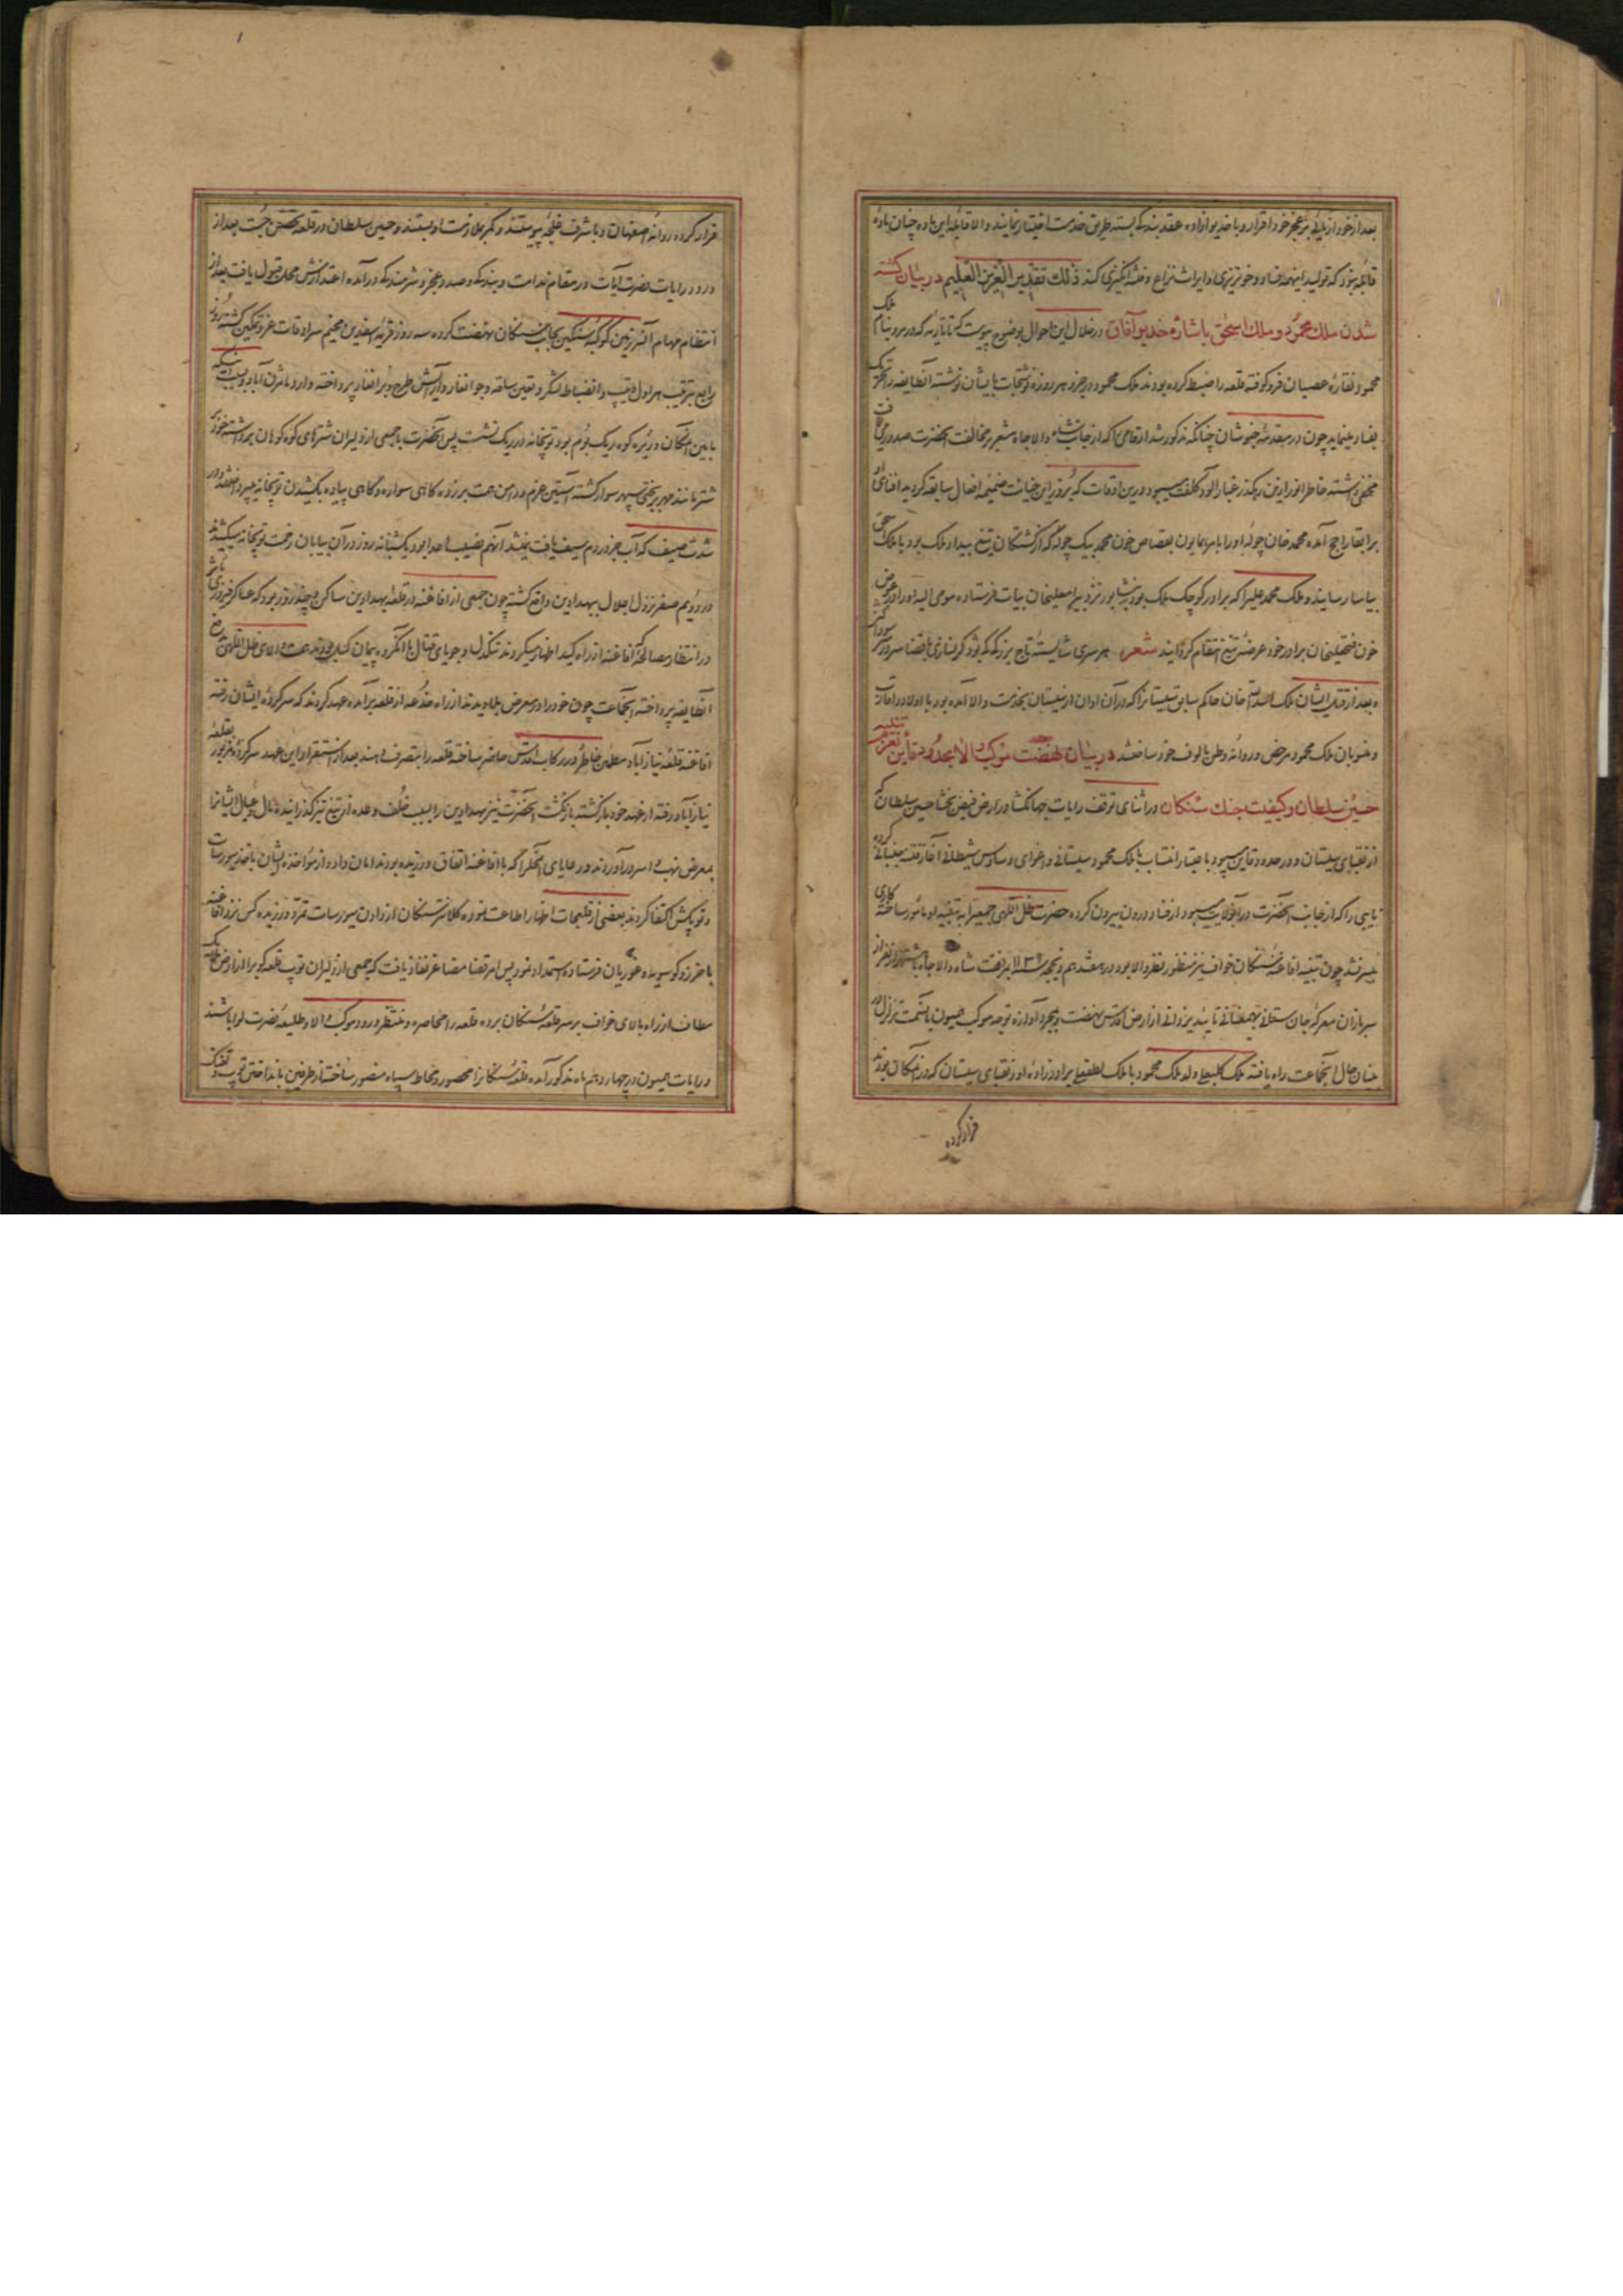 بعد از خود از نیایی بر عجز خود اقرار و با خدیو آزاده عقد بندگی بسته طریق خدمت اختیار نمایند والا قابله این ماده چنان باده
قائله بود که تولید اینهمه فساد و خونریزی و ایراث نزاع و فتنه انگیزی کند ذلك تقدیر العزیز العلیم در بیان کشته
شدن ملك محمود و ملك اسحق باشارهٔ خدیو آفاق در خلال این احوال بوضوح پیوست که تاتاریه که در مرو بنام ملک
محمود نقارهٔ عصیان فرو کوفته قلعه را ضبط کرده بودند ملک محمود در جزو هر روزه نوشتجات بایشان نوشته آنطایفه را تحریک
بفساد مینماید چون در مقدمهٔ خبوشان چنانکه مذکور شد ارقامی را که از جانب شاه والاجاه مشعر بر مخالفت آنحضرت صدور می یافت
مخفی داشته خاطر انور ازین رهگذر غبار آلود کلفت میبود درین اوقات که بروز این خیانت ضمیمهٔ افعال سابقه گردید افنای او
بر ابقا راجح آمده محمد خان چوله او را بامر همایون بقصاص خون محمد بیک چوله که از کشتگان تیغ بیداد ملک بود با ملک اسحق
بیاسا رسانید و ملک محمد علی را که برادر کوچک ملک بود به نیشابور نزد بیر اسمعیلخان بیات فرستاده مومی الیه او را در عوض
خون فتحعلیخان برادر خود عرضهٔ تیغ انتقام گردانید شعر هر سری شایستهٔ تاج بزرگی کی بود
و بعد از قتل ایشان ملک اسدالله خان حاکم سابق سیستان را که در آن اوان از سیستان بخدمت والا آمده بود با اولاد و اقارب
و منسوبان ملک محمود مرخص و روانهٔ وطن مألوف خود ساختند در بیان نهضت موکب والا بحدود قاین بعزم تنبیه
حسین سلطان و کیفیت جنك سنكان در اثنای توقف رایات جهانگشا در ارض فیض بخشا حسین سلطان که
از نقبای سیستان و در حدود قاین میبود باعتبار انتساب با ملک محمود سیستانی و اغوای وساوس شیطانی آغاز فتنه جنبانی کرده
نایبی را که از جانب آنحضرت در آنولایت میبود از فساد درون بیرون کرده حضرت ظل اللهی جمعی را به تنبیه او مأمور ساخته کاری
میسر نشد چون تنبیه افاغنهٔ سنکان خواف نیز منظور نظر والا بود در هفدهم ذیحجه سنه ۱۱۳۹ بمرافقت شاه والاجاه با هشتهزار نفر از
سربازان معرکهٔ جان ستانی بهمعنانی تأیید یزدانی از ارض اقدس نهضت و بمجرد آوازهٔ توجه موکب همیون بآنسمت تزلزل در
بنیان حال آنجماعت راه یافته ملک کلبعلی ولد ملک محمود با ملک لطفعلی برادرزادهٔ او و نقبای سیستان که در آنمکان بودند
قرار کرده
قرار کرده روانهٔ اصفهان و باشرف غلیجه پیوستند و کمر بملازمت او بستند و حسین سلطان در قلعه تحصن جست بعد از
ورود رایات نصرت آیات در مقام ندامت و بندگی و صدد عجز و شرمندگی درآمده اعتذارش محل قبول یافت بعد از
انتظام مهام آنسرزمین کوکبهٔ سنگین بجانب سنکان نهضت کرده سه روز قریه اسفدین مخیم سرادقات عز و تمکین گشته روز
رابع بترتیب هراول و چپ و انضباط لشکر و تعیین ساقه و جوانغار و آرایش طرح و برانغار پرداخته وارد مأمن شرف آباد
مابین امکان و زیره کوه ریک بوم بود توپخانه در ریک نشست پس آنحضرت با جمعی از دلیران شترهای کوه کوهان بهمراه داشته خود بر
شتر مانند مهر بر بختی سپهر سوار گشته آستین عزم و دامن همت بر زده گاهی سواره و گاهی پیاده بکشیدن توپخانه میپرداختند و در
شدت صیف که آب جز در دم سیف یافت نمیشد آنهم نصیب اعدا بود یکشبانه روز در آن بیابان زحمت توپخانه میکشیدند
در دویم صفر نزول اجلال ببهدادین واقع گشته چون جمعی از افاغنه در قلعه بهدادین ساکن و چند روز بود که عساکر فیروزی مآثر
در انتظار مصالحهٔ افاغنه از راه کید اظهار میکردند تنگدل و جویای قتال با آنگروه پیمان گسل بودند همت والای ظل اللهی برفع
آنطایفه پرداخته آنجماعت چون خود را در معرض بلا دیدند از راه خدعه از قلعه برآمده عهد کردند که سرکردهٔ ایشان رفته
افاغنه قلعهٔ نیازآباد را مطمئن خاطر و در رکاب اقدس حاضر ساخته قلعه را بتصرف دهند بعد از استقرار این عهد سرکردهٔ مزبور بقلعه
نیازآباد رفته از عهد خود بازگشته بازنگشت آنحضرت نیز بهدادین را بسبب خلف وعده از تیغ تیز گذرانیده مال و عیال ایشانرا
بمعرض نهب و اسر درآوردند و رعایای آنمحل را که با افاغنه اتفاق ورزیده بودند امان داد و از مؤاخذه ایشان باخذ سیورسات
و توپکش اکتفا کردند بعضی از قلیجات اظهار اطاعت نموده کلانتر سنکان از دادن سیورسات تمرد ورزیده کس نزد افاغنه
باخرز و کوسویه و غوریان فرستاده استمداد نمود پس امر قضا مضا عز نفاذ یافت که جمعی از دلیران توپ قلعه کوب را از ارض فلک
مطاف از راه بالای خواف بر سر قلعهٔ سنکان برده قلعه را محاصره و منتظر ورود موکب والا و طلیعهٔ نصرت لوا باشند
و رایات همیون در چهاردهم ماه مذکور آمده قلعهٔ سنکانرا محصور و محاط سپاه منصور ساختند از طرفین بانداختن توپ و تفنک